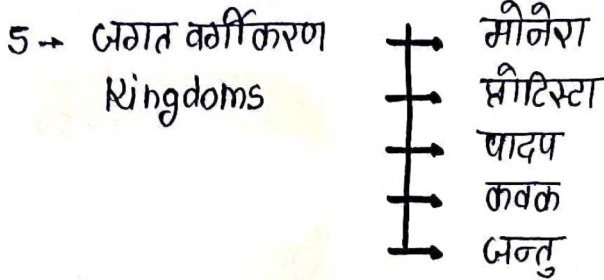 5→ जगत वर्गीकरण
Kingdoms
मोनेरा
प्रोटिस्टा
पादप
कवक
जन्तु